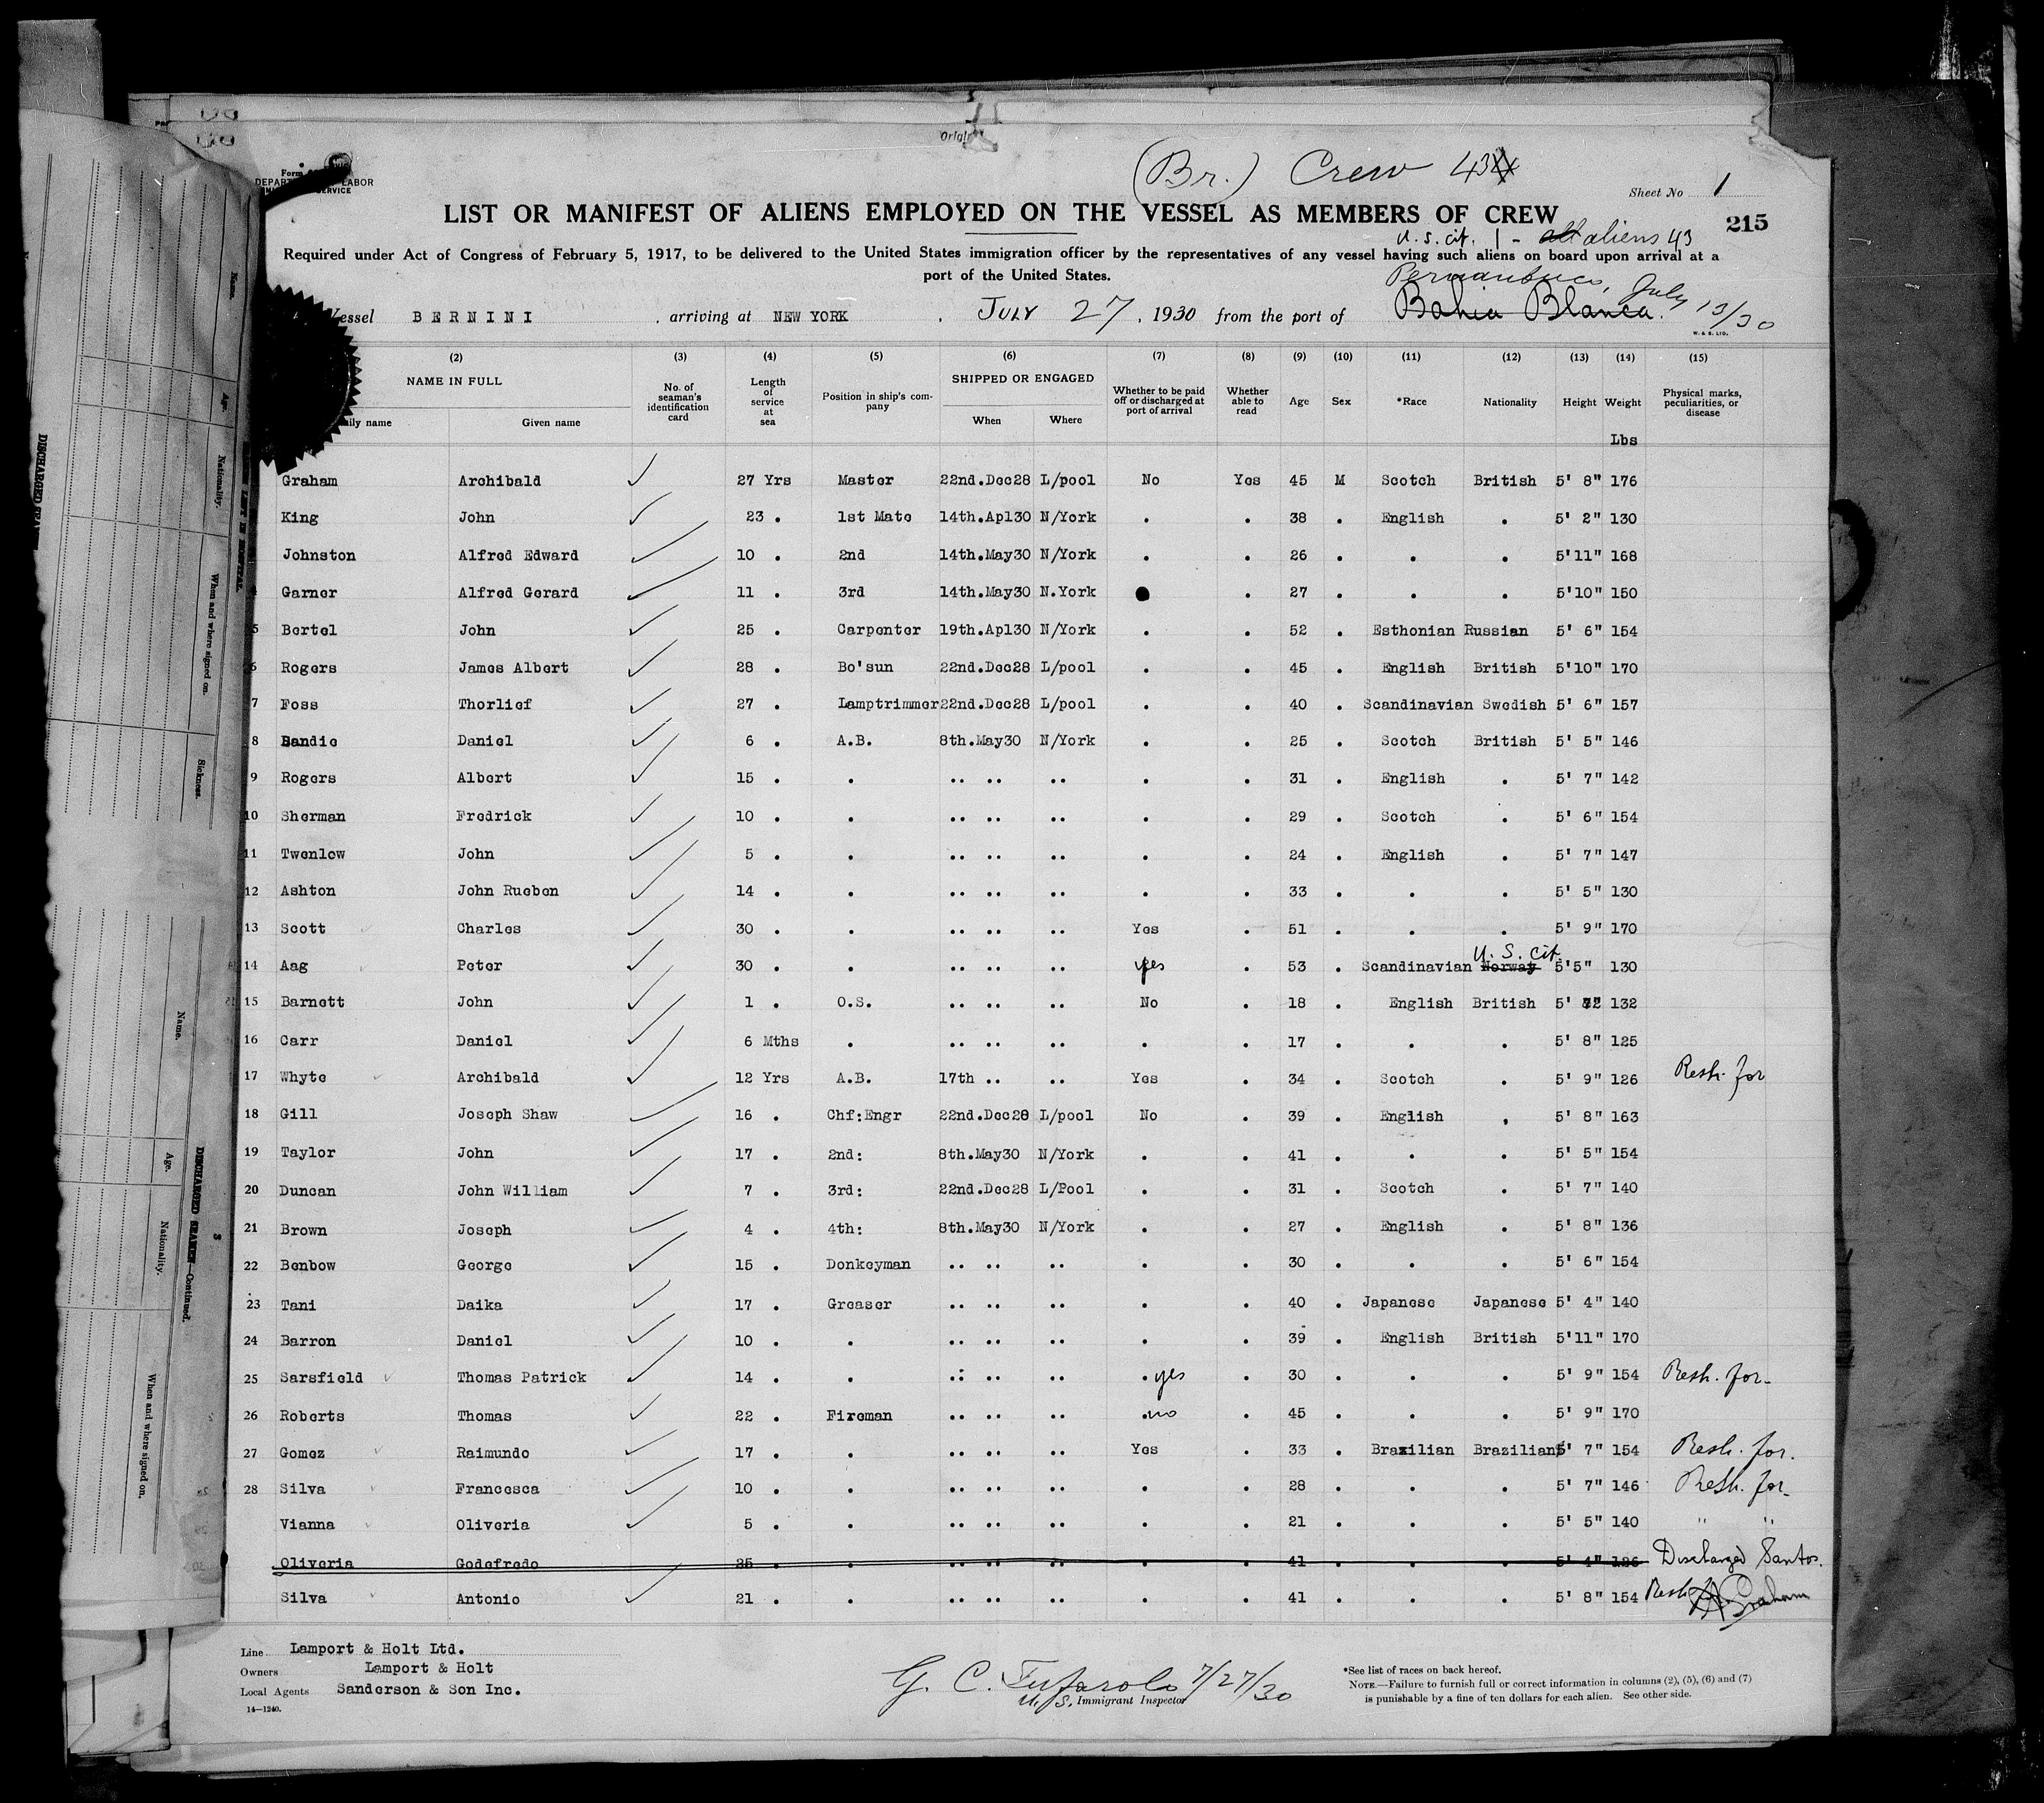 Original
(Br.) Crew 43
Form
DEPARTMENT OF LABOR
IMMIGRATION SERVICE
Sheet No 1
LIST OR MANIFEST OF ALIENS EMPLOYED ON THE VESSEL AS MEMBERS OF CREW
215
U.S. cit. 1 - aliens 43
Required under Act of Congress of February 5, 1917, to be delivered to the United States immigration officer by the representatives of any vessel having such aliens on board upon arrival at a
port of the United States.
Pernambuco, July 13/30
Vessel BERNINI, arriving at NEW YORK, JULY 27, 1930 from the port of Bahia Blanca.
W. & S. LTD.
(2) (3) (4) (5) (6) (7) (8) (9) (10) (11) (12) (13) (14) (15)
NAME IN FULL No. of seaman's identification card Length of service at sea Position in ship's company SHIPPED OR ENGAGED Whether to be paid off or discharged at port of arrival Whether able to read Age Sex *Race Nationality Height Weight Physical marks, peculiarities, or disease
Family name Given name When Where
Lbs
Graham Archibald 27 Yrs Master 22nd.Dec28 L/pool No Yes 45 M Scotch British 5' 8" 176
King John 23 . 1st Mate 14th.Apl30 N/York . . 38 . English . 5' 2" 130
Johnston Alfred Edward 10 . 2nd 14th.May30 N/York . . 26 . . . 5'11" 168
4 Garner Alfred Gerard 11 . 3rd 14th.May30 N.York . . 27 . . . 5'10" 150
5 Bertel John 25 . Carpenter 19th.Apl30 N/York . . 52 . Esthonian Russian 5' 6" 154
6 Rogers James Albert 28 . Bo'sun 22nd.Dec28 L/pool . . 45 . English British 5'10" 170
7 Foss Thorlief 27 . Lamptrimmer 22nd.Dec28 L/pool . . 40 . Scandinavian Swedish 5' 6" 157
8 Bandie Daniel 6 . A.B. 8th.May30 N/York . . 25 . Scotch British 5' 5" 146
9 Rogers Albert 15 . . .. .. .. . . 31 . English . 5' 7" 142
10 Sherman Fredrick 10 . . .. .. .. . . 29 . Scotch . 5' 6" 154
11 Twenlow John 5 . . .. .. .. . . 24 . English . 5' 7" 147
12 Ashton John Rueben 14 . . .. .. .. . . 33 . . . 5' 5" 130
13 Scott Charles 30 . . .. .. .. Yes . 51 . . . 5' 9" 170
U.S. cit.
14 Aag Peter 30 . . .. .. .. yes . 53 . Scandinavian Norway 5'5" 130
15 Barnett John 1 . O.S. .. .. .. No . 18 . English British 5' 132
16 Carr Daniel 6 Mths . .. .. .. . . 17 . . . 5' 8" 125
17 Whyte Archibald 12 Yrs A.B. 17th .. .. Yes . 34 . Scotch . 5' 9" 126 Resh. for
18 Gill Joseph Shaw 16 . Chf:Engr 22nd.Dec28 L/pool No . 39 . English . 5' 8" 163
19 Taylor John 17 . 2nd: 8th.May30 N/York . . 41 . . . 5' 5" 154
20 Duncan John William 7 . 3rd: 22nd.Dec28 L/Pool . . 31 . Scotch . 5' 7" 140
21 Brown Joseph 4 . 4th: 8th.May30 N/York . . 27 . English . 5' 8" 136
22 Benbow George 15 . Donkeyman .. .. .. . . 30 . . . 5' 6" 154
23 Tani Daika 17 . Greaser .. .. .. . . 40 . Japanese Japanese 5' 4" 140
24 Barron Daniel 10 . . .. .. .. . . 39 . English British 5'11" 170
25 Sarsfield Thomas Patrick 14 . . .. .. .. . yes . 30 . . . 5' 9" 154 Resh. for-
26 Roberts Thomas 22 . Fireman .. .. .. . no . 45 . . . 5' 9" 170
27 Gomez Raimundo 17 . . .. .. .. Yes . 33 . Brazilian Brazilian 5' 7" 154 Resh. for.
28 Silva Francesca 10 . . .. .. .. . . 28 . . . 5' 7" 146 Resh. for-
Vianna Oliveria 5 . . .. .. .. . . 21 . . . 5' 5" 140 " "
Oliveria Godefredo 25 . . .. .. .. . . 41 . . . 5' 4" 126 Discharged Santos.
Silva Antonio 21 . . .. .. .. . . 41 . . . 5' 8" 154 Resh. A Graham
Line Lamport & Holt Ltd.
Owners Lamport & Holt
Local Agents Sanderson & Son Inc.
14—1240.
G. C. 7/27/30
U.S. Immigrant Inspector
*See list of races on back hereof.
NOTE.—Failure to furnish full or correct information in columns (2), (5), (6) and (7)
is punishable by a fine of ten dollars for each alien. See other side.
Name.
Age.
Nationality.
When and where signed on.
Sickness.
LEFT IN HOSPITAL.
DISCHARGED SEAMEN
DISCHARGED SEAMEN—Continued.
Name.
Age.
Nationality.
When and where signed on.